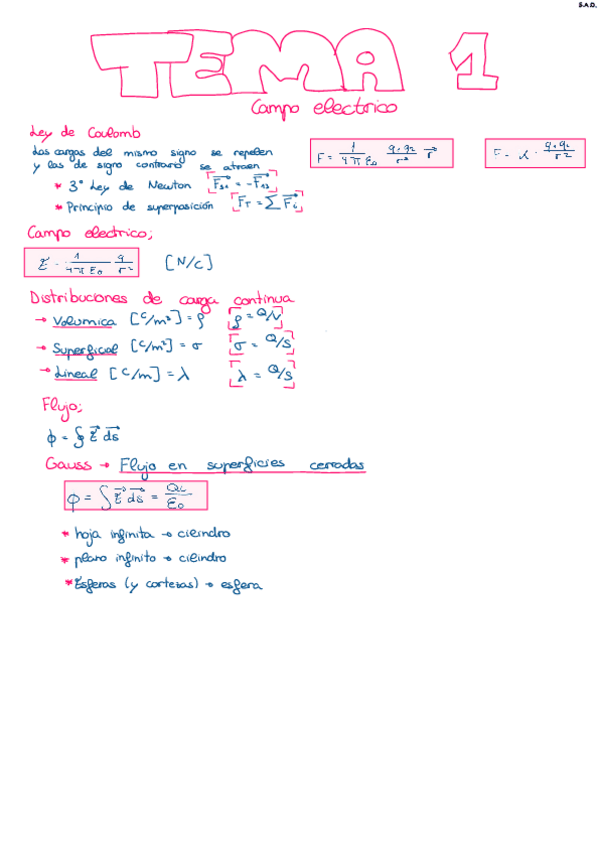 S.A.D.
TEMA 1
Campo electrico
Ley de Coulomb
Las cargas del mismo signo se repelen
y las de signo contrario se atraen
F = 1/4πε₀ q·q₂/r² r⃗
F = λ · q·q₂/r²
* 3ª Ley de Newton
* Principio de superposición [F_T = Σ F⃗ᵢ]
Campo electrico;
E = 1/4πε₀ q/r² [N/C]
Distribuciones de carga continua
→ Volumica [C/m³] = ρ [ρ = Q/V]
→ Superficial [C/m²] = σ [σ = Q/S]
→ Lineal [C/m] = λ [λ = Q/S]
Flujo;
ϕ = ∮ E⃗ ds⃗
Gauss → Flujo en superficies cerradas
ϕ = ∫ E⃗ ds⃗ = Q/ε₀
* hoja infinita → cilindro
* plano infinito → cilindro
* Esferas (y cortezas) → esfera